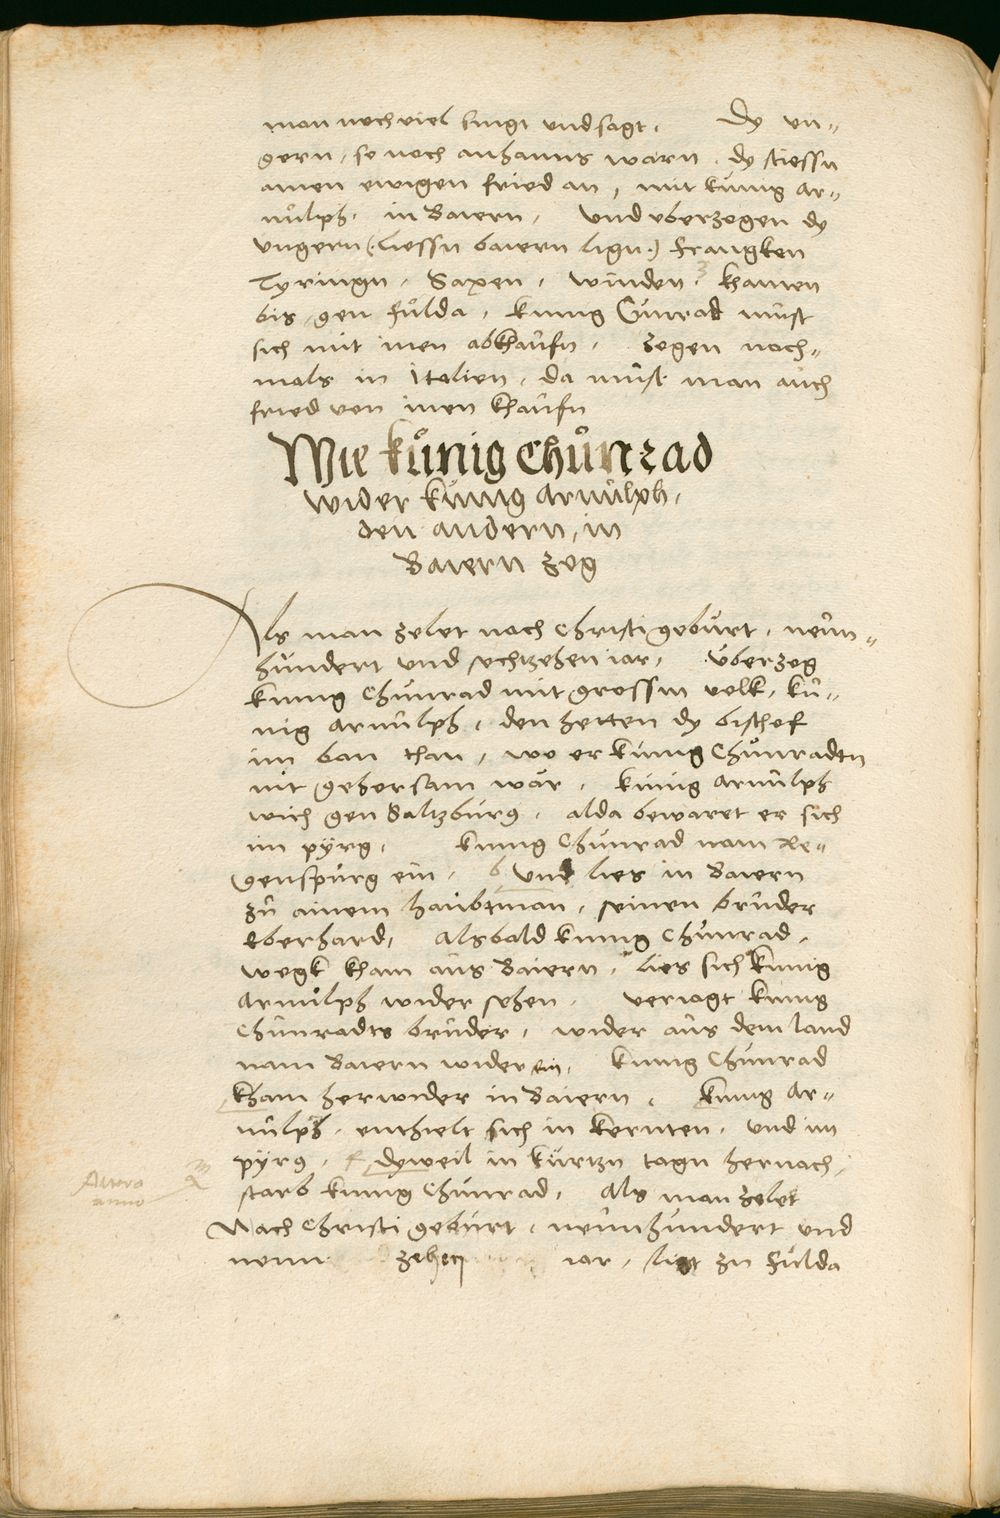 man noch viel singt und sagt. Dy un=
gern, so noch anhaims warn, dy stiessn
ainen ewigen fried an, mit künig Ar=
nůlph, in Baiern, und uberzogen dy
ungern (liessn baiern lign) Frangken
Tyringn, Saxen, winden, khamen
bis gen Fůlda, künig Cůnrad můst
sich mit inen abkhaůfn, zogen noch=
mals in Italien, da můst man aůch
fried von inen khaůfn
Wie kůnig Chůnrad
wider kůnig Arnůlph,
den andern, in
Baiern zog
Als man zelet nach Christi gebůrt, neůn=
hůndert und sechtzehen iar, ůberzog
künig Chůnrad mit grossm volk, ků=
nig Arnůlph, den hetten dy bischof
im ban than, wo er künig Chůnraden
nit gehorsam wär, künig Arnůlph
wich gen Saltzbůrg, alda bewaret er sich
im pyrg, künig Chůnrad nam Re=
genspůrg ein, und lies in Baiern
zů ainem haůbtman, seinen brůder
Eberhard, Alsbald künig Chůnrad,
wegk kham aůs Baiern, lies sich künig
Arnůlph wider sehen, veriagt künig
Chůnradts brůder, wider aůs dem land
nam Baiern wider ein, künig Chůnrad
kham herwider in Baiern, künig Ar=
nůlph, enthielt sich in kernten, und im
pyrg, dyweil in kůrtzn tagn hernach,
Altero
anno
starb künig Chůnrad, Als man zelet
Nach Christi gebůrt, neůnhůndert und
neun zehen iar, ligt zu Fůlda